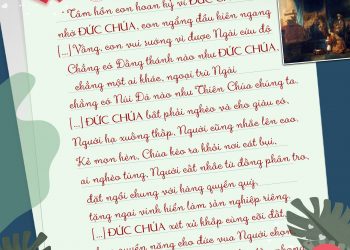 "Tâm hồn con hoan hỷ vì ĐỨC CHÚA,
nhờ ĐỨC CHÚA, con ngẩng đầu kiên ngang
[...] Vâng, con vui sướng vì được Ngài cứu độ
Chẳng có Đấng thánh nào như ĐỨC CHÚA,
chẳng một ai khác, ngoại trừ Ngài
chẳng có Núi Đá nào như Thiên Chúa chúng ta.
[...] ĐỨC CHÚA bắt phải nghèo và cho giàu có,
Người hạ xuống thấp, Người cũng nhấc lên cao.
Kẻ mọn hèn, Chúa kéo ra khỏi nơi cát bụi,
ai nghèo túng, Người cất nhắc từ đống phân tro,
đặt ngồi chung với hàng quyền quý,
tặng ngai vinh hiển làm sản nghiệp riêng.
[...] ĐỨC CHÚA xét xử khắp cùng cõi đất,
quyền năng cho đức vua Người chọn